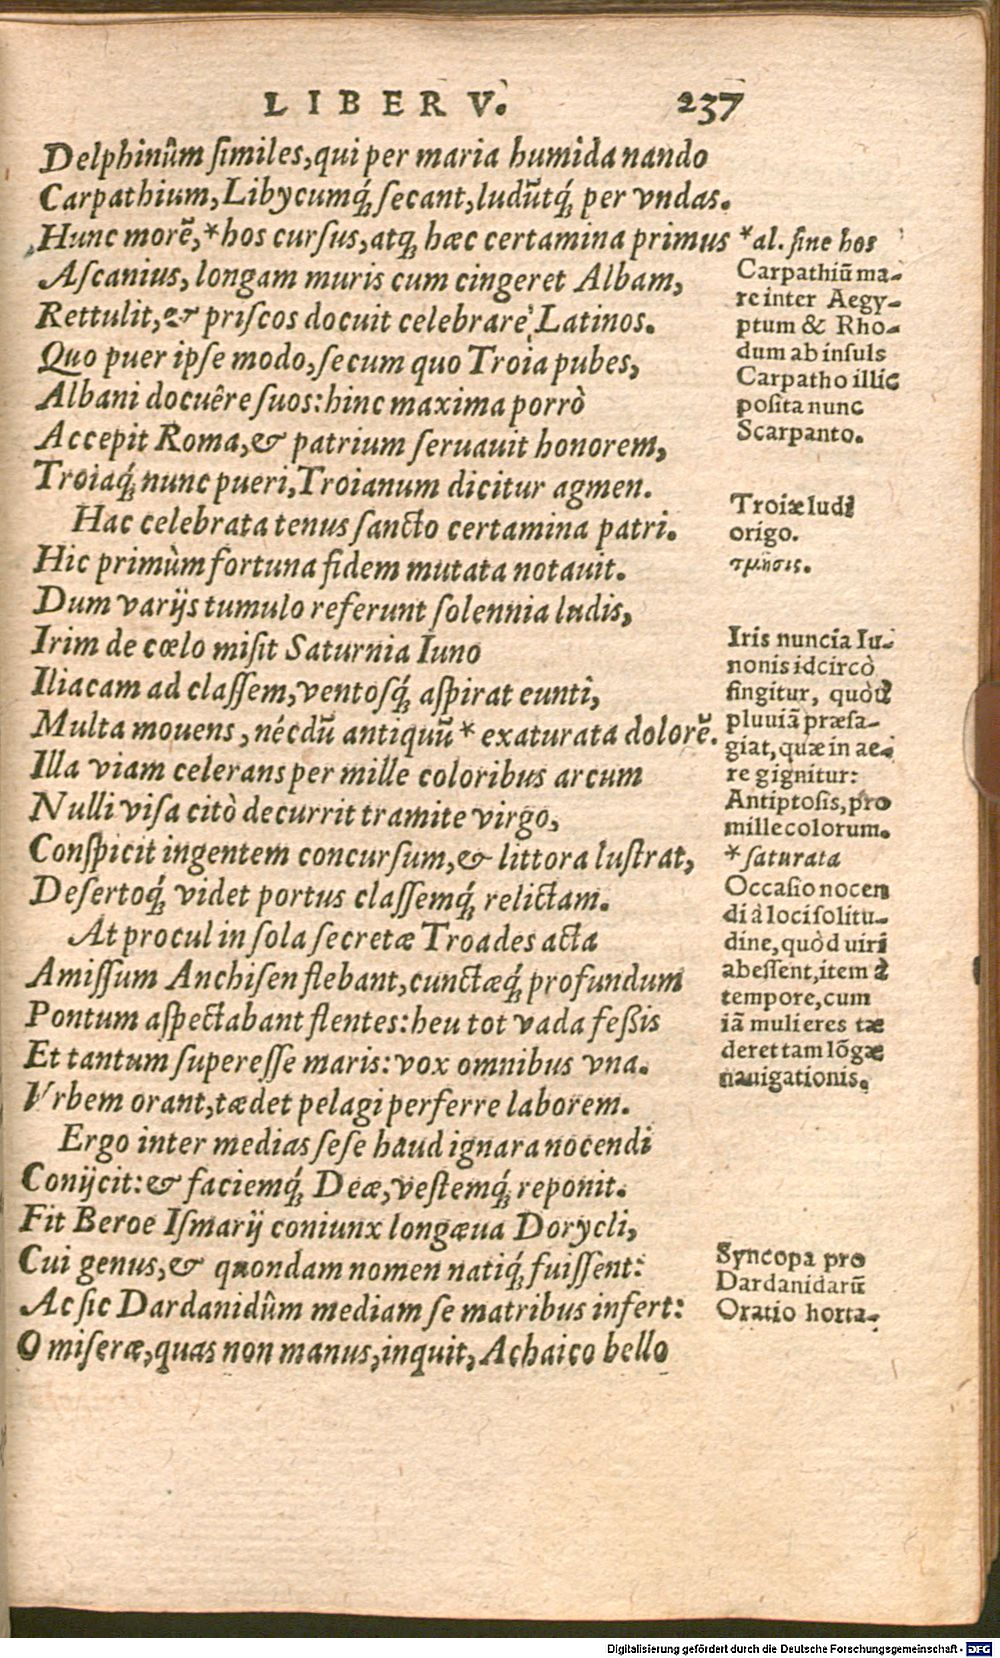 LIBER V. 237
Delphinûm ſimiles, qui per maria humida nando
Carpathium, Libycumq́ꝫ ſecant, ludũtq́ꝫ per vndas.
Hunc morẽ, *hos curſus, atqꝫ hæc certamina primus
Aſcanius, longam muris cum cingeret Albam,
Rettulit, & priſcos docuit celebrare Latinos.
Quo puer ipſe modo, ſecum quo Troia pubes,
Albani docuêre ſuos: hinc maxima porrò
Accepit Roma, & patrium ſeruauit honorem,
Troiaq́ꝫ nunc pueri, Troianum dicitur agmen.
Hac celebrata tenus ſancto certamina patri.
Hic primùm fortuna fidem mutata notauit.
Dum varijs tumulo referunt ſolennia ludis,
Irim de cœlo miſit Saturnia Iuno
Iliacam ad claſſem, ventoſq́ꝫ aſpirat eunti,
Multa mouens, nécdũ antiquũ * exaturata dolorẽ.
Illa viam celerans per mille coloribus arcum
Nulli viſa citò decurrit tramite virgo,
Conſpicit ingentem concurſum, & littora luſtrat,
Deſertoq́ꝫ videt portus claſſemq́ꝫ relictam.
At procul in ſola ſecretæ Troades acta
Amiſſum Anchiſen flebant, cunctæq́ꝫ profundum
Pontum aſpectabant flentes: heu tot vada feßis
Et tantum ſupereſſe maris: vox omnibus vna.
Vrbem orant, tædet pelagi perferre laborem.
Ergo inter medias ſeſe haud ignara nocendi
Conijcit: & faciemq́ꝫ Deæ, veſtemq́ꝫ reponit.
Fit Beroe Iſmarij coniunx longæua Dorycli,
Cui genus, & quondam nomen natiq́ꝫ fuiſſent:
Ac ſic Dardanidûm mediam ſe matribus infert:
O miſeræ, quas non manus, inquit, Achaico bello
*al. ſine hos
Carpathiũ ma-
re inter Aegy-
ptum & Rho-
dum ab inſuls
Carpatho illic
poſita nunc
Scarpanto.
Troiæ ludi
origo.
τμῆσις.
Iris nuncia Iu-
nonis idcircò
fingitur, quòd
pluuiã præſa-
giat, quæ in ae-
re gignitur:
Antiptoſis, pro
mille colorum.
*ſaturata
Occaſio nocen
di à loci ſolitu-
dine, quòd uiri
abeſſent, item à
tempore, cum
iã mulieres tæ
deret tam lõgæ
nauigationis.
Syncopa pro
Dardanidarũ
Oratio horta-
Digitalisierung gefördert durch die Deutsche Forschungsgemeinschaft - DFG